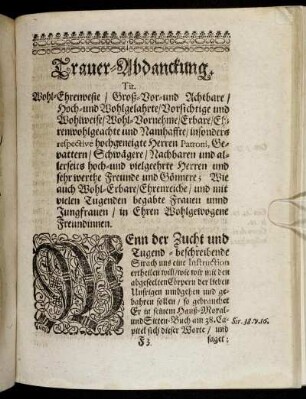 Trauer-Abdanckung,
Tit.
Wohl-Ehrenveste / Groß-Vor-und Achtbare /
Hoch-und Wohlgelahrte / Vorsichtige und
Wohlweise / Wohl-Vornehme / Erbare / Eh-
renwohlgeachte und Namhaffte / insonders
respective hochgeneigte Herren Patroni, Ge-
vattern / Schwägere / Nachbaren und al-
lerseits hoch-und vielgeehrte Herren und
sehr werthe Freunde und Gönnere; Wie
auch Wohl-Erbare / Ehrenreiche / und mit
vielen Tugenden begabte Frauen unnd
Jungfrauen / in Ehren Wohlgewogene
Freundinnen.
WEnn der Zucht und
Tugend-beschreibende
Syrach uns eine Instruction
ertheilen will / wie wir mit den
abgeseelten Cörpern der lieben
Unsrigen umbgehen und ge-
bahren sollen / so gebrauchet
Er in seinem Hauß-Moral-
und Sitten-Buch am 38. Ca-
pitel sich dieser Worte / und
Sir. 38. v. 16.
F 3
saget: